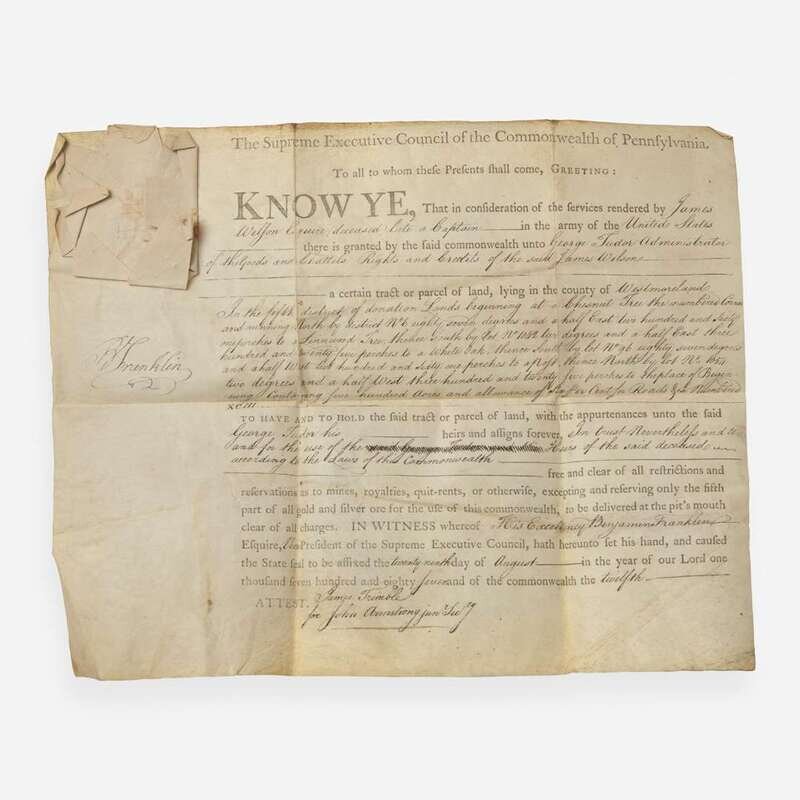 The Supreme Executive Council of the Commonwealth of Pennſylvania.
To all to whom theſe Preſents ſhall come, GREETING:
KNOW YE, That in conſideration of the ſervices rendered by James
Wilson Esquire deceased late a Captain in the army of the United States
there is granted by the ſaid commonwealth unto George Tudor Administrator
of the Goods and Chattels Rights and Credits of the said James Wilson
a certain tract or parcel of land, lying in the county of Westmoreland
In the fifth district of donation Lands beginning at a Chesnut Tree the numbered Corner
and running North by district No 6 eighty seven degrees and a half East two hundred and Sixty
one perches to a Tree thence South by Lot No two degrees and a half East three
hundred and twenty five perches to a White Oak, thence South by Lot No 96 eighty seven degrees
and a half West two hundred and Sixty one perches to a Post, thence North by Lot No
two degrees and a half West three hundred and twenty five perches to the place of Begin
ning Containing five hundred Acres and allowance of Six per Cent for Roads &c
TO HAVE AND TO HOLD the ſaid tract or parcel of land, with the appurtenances unto the ſaid
George Tudor his heirs and aſſigns forever, In trust Nevertheless and to
and for the use of the Heirs of the said deceased
according to the Laws of this Commonwealth
free and clear of all reſtrictions and
reſervations as to mines, royalties, quit-rents, or otherwiſe, excepting and reſerving only the fifth
part of all gold and ſilver ore for the uſe of this commonwealth, to be delivered at the pit's mouth
clear of all charges. IN WITNESS whereof His Excellency Benjamin Franklin
Eſquire, Preſident of the Supreme Executive Council, hath hereunto ſet his hand, and cauſed
the State ſeal to be affixed the twenty ninth day of August in the year of our Lord one
thouſand ſeven hundred and eighty seven and of the commonwealth the twelfth
ATTEST. James Trimble
for John Armstrong junr. Secy
B Franklin